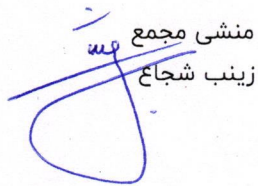 منشی مجمع
زینب شجاع